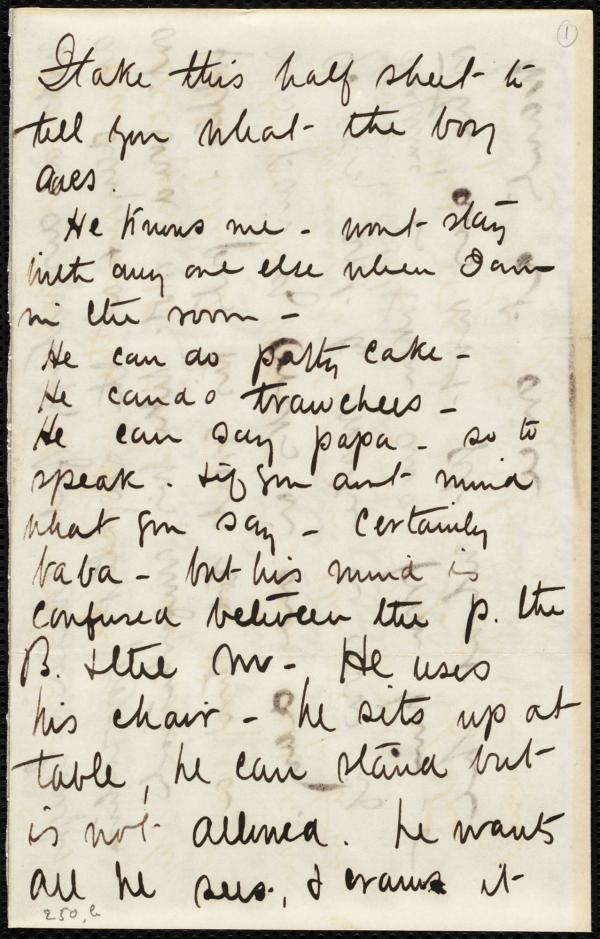 1
I take this half sheet to
tell you what the boy
does.
He knows me - wont stay
with any one else when I am
in the room -
He can do patty cake -
He can do
He can say papa - so to
speak. & if you aint mind
what you say - Certainly
baba - but his mind is
confused between the p. the
B. & the M - He uses
his chair - he sits up at
table, he can stand but
is not allowed. he wants
all he sees, & crams it
250, b